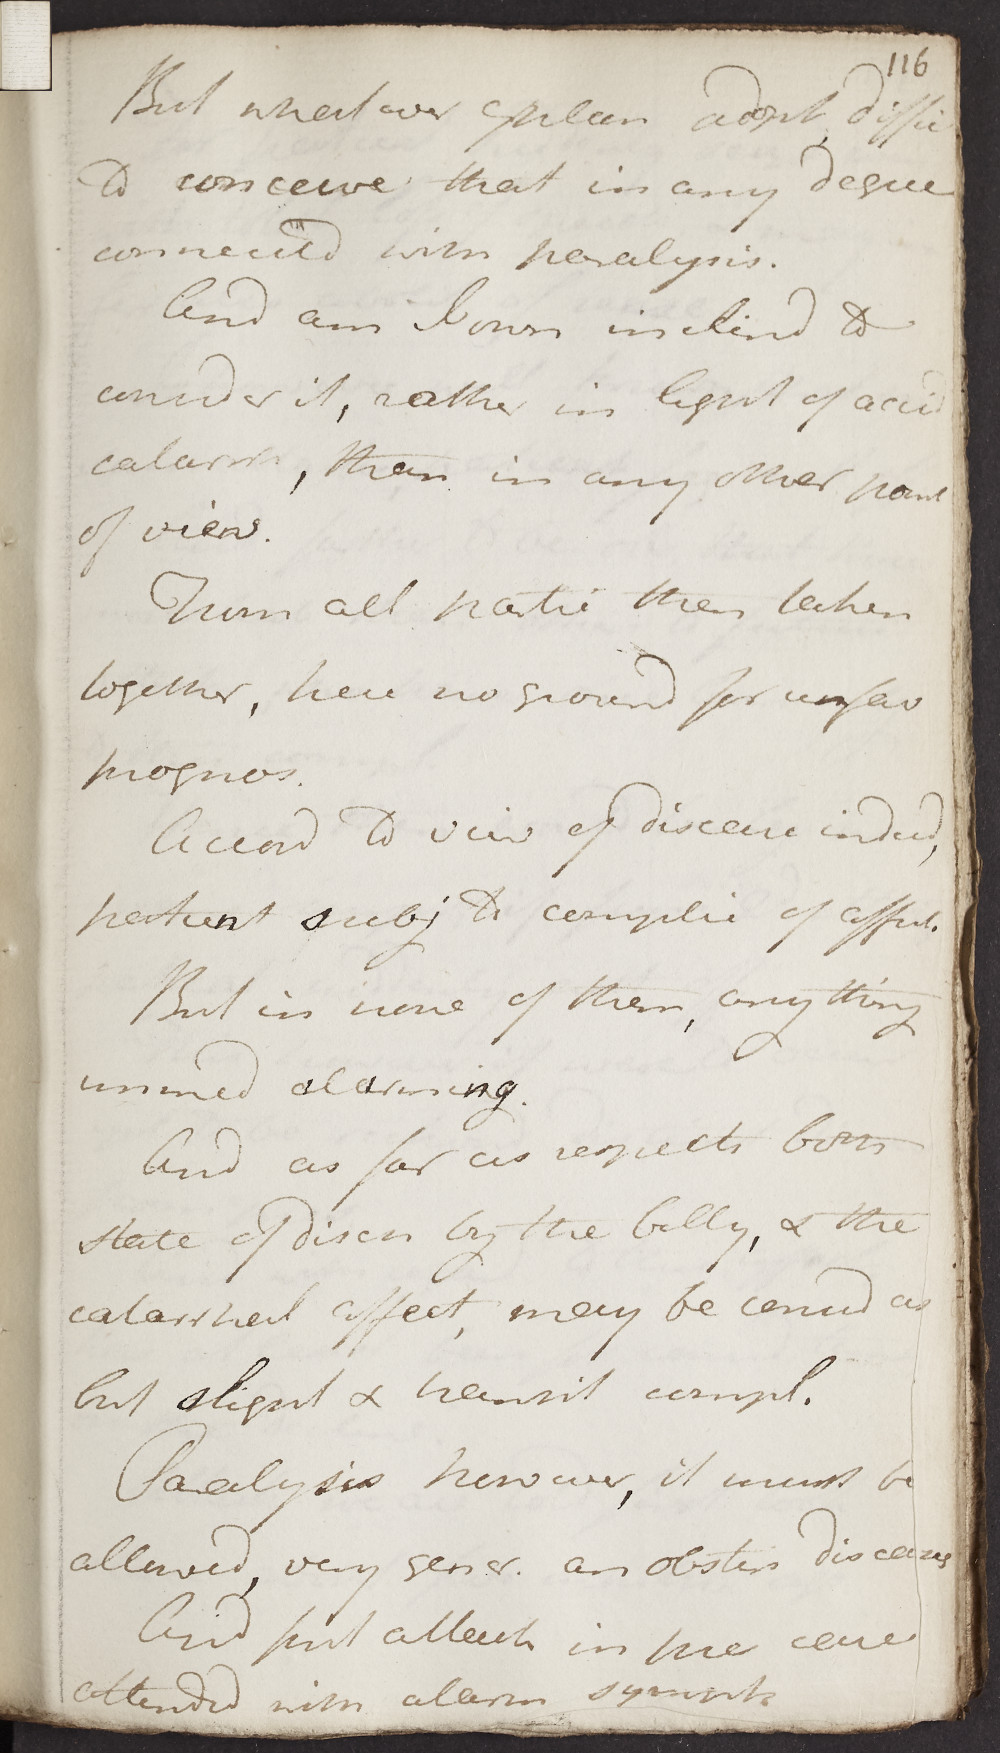 116
But whatever explan adopt, diffic
to conceive that in any degree
connected with paralysis.
And am I own inclind to
consider it, rather in light of acid
catarrh, than in any other point
of view.
From all partic then taken
together, here no ground for unfav
prognos.
Accord to view of disease indeed,
patient subj to complic of affect.
But in none of them, any thing
immed alarming.
And as far as respects both
state of disch by the belly, & the
catarrhal affect, may be consid as
but slight & transit compl.
Paralysis however, it must be
allowed, very gener. an obstin disease
And first attack in pres case
attended with alarm sympt